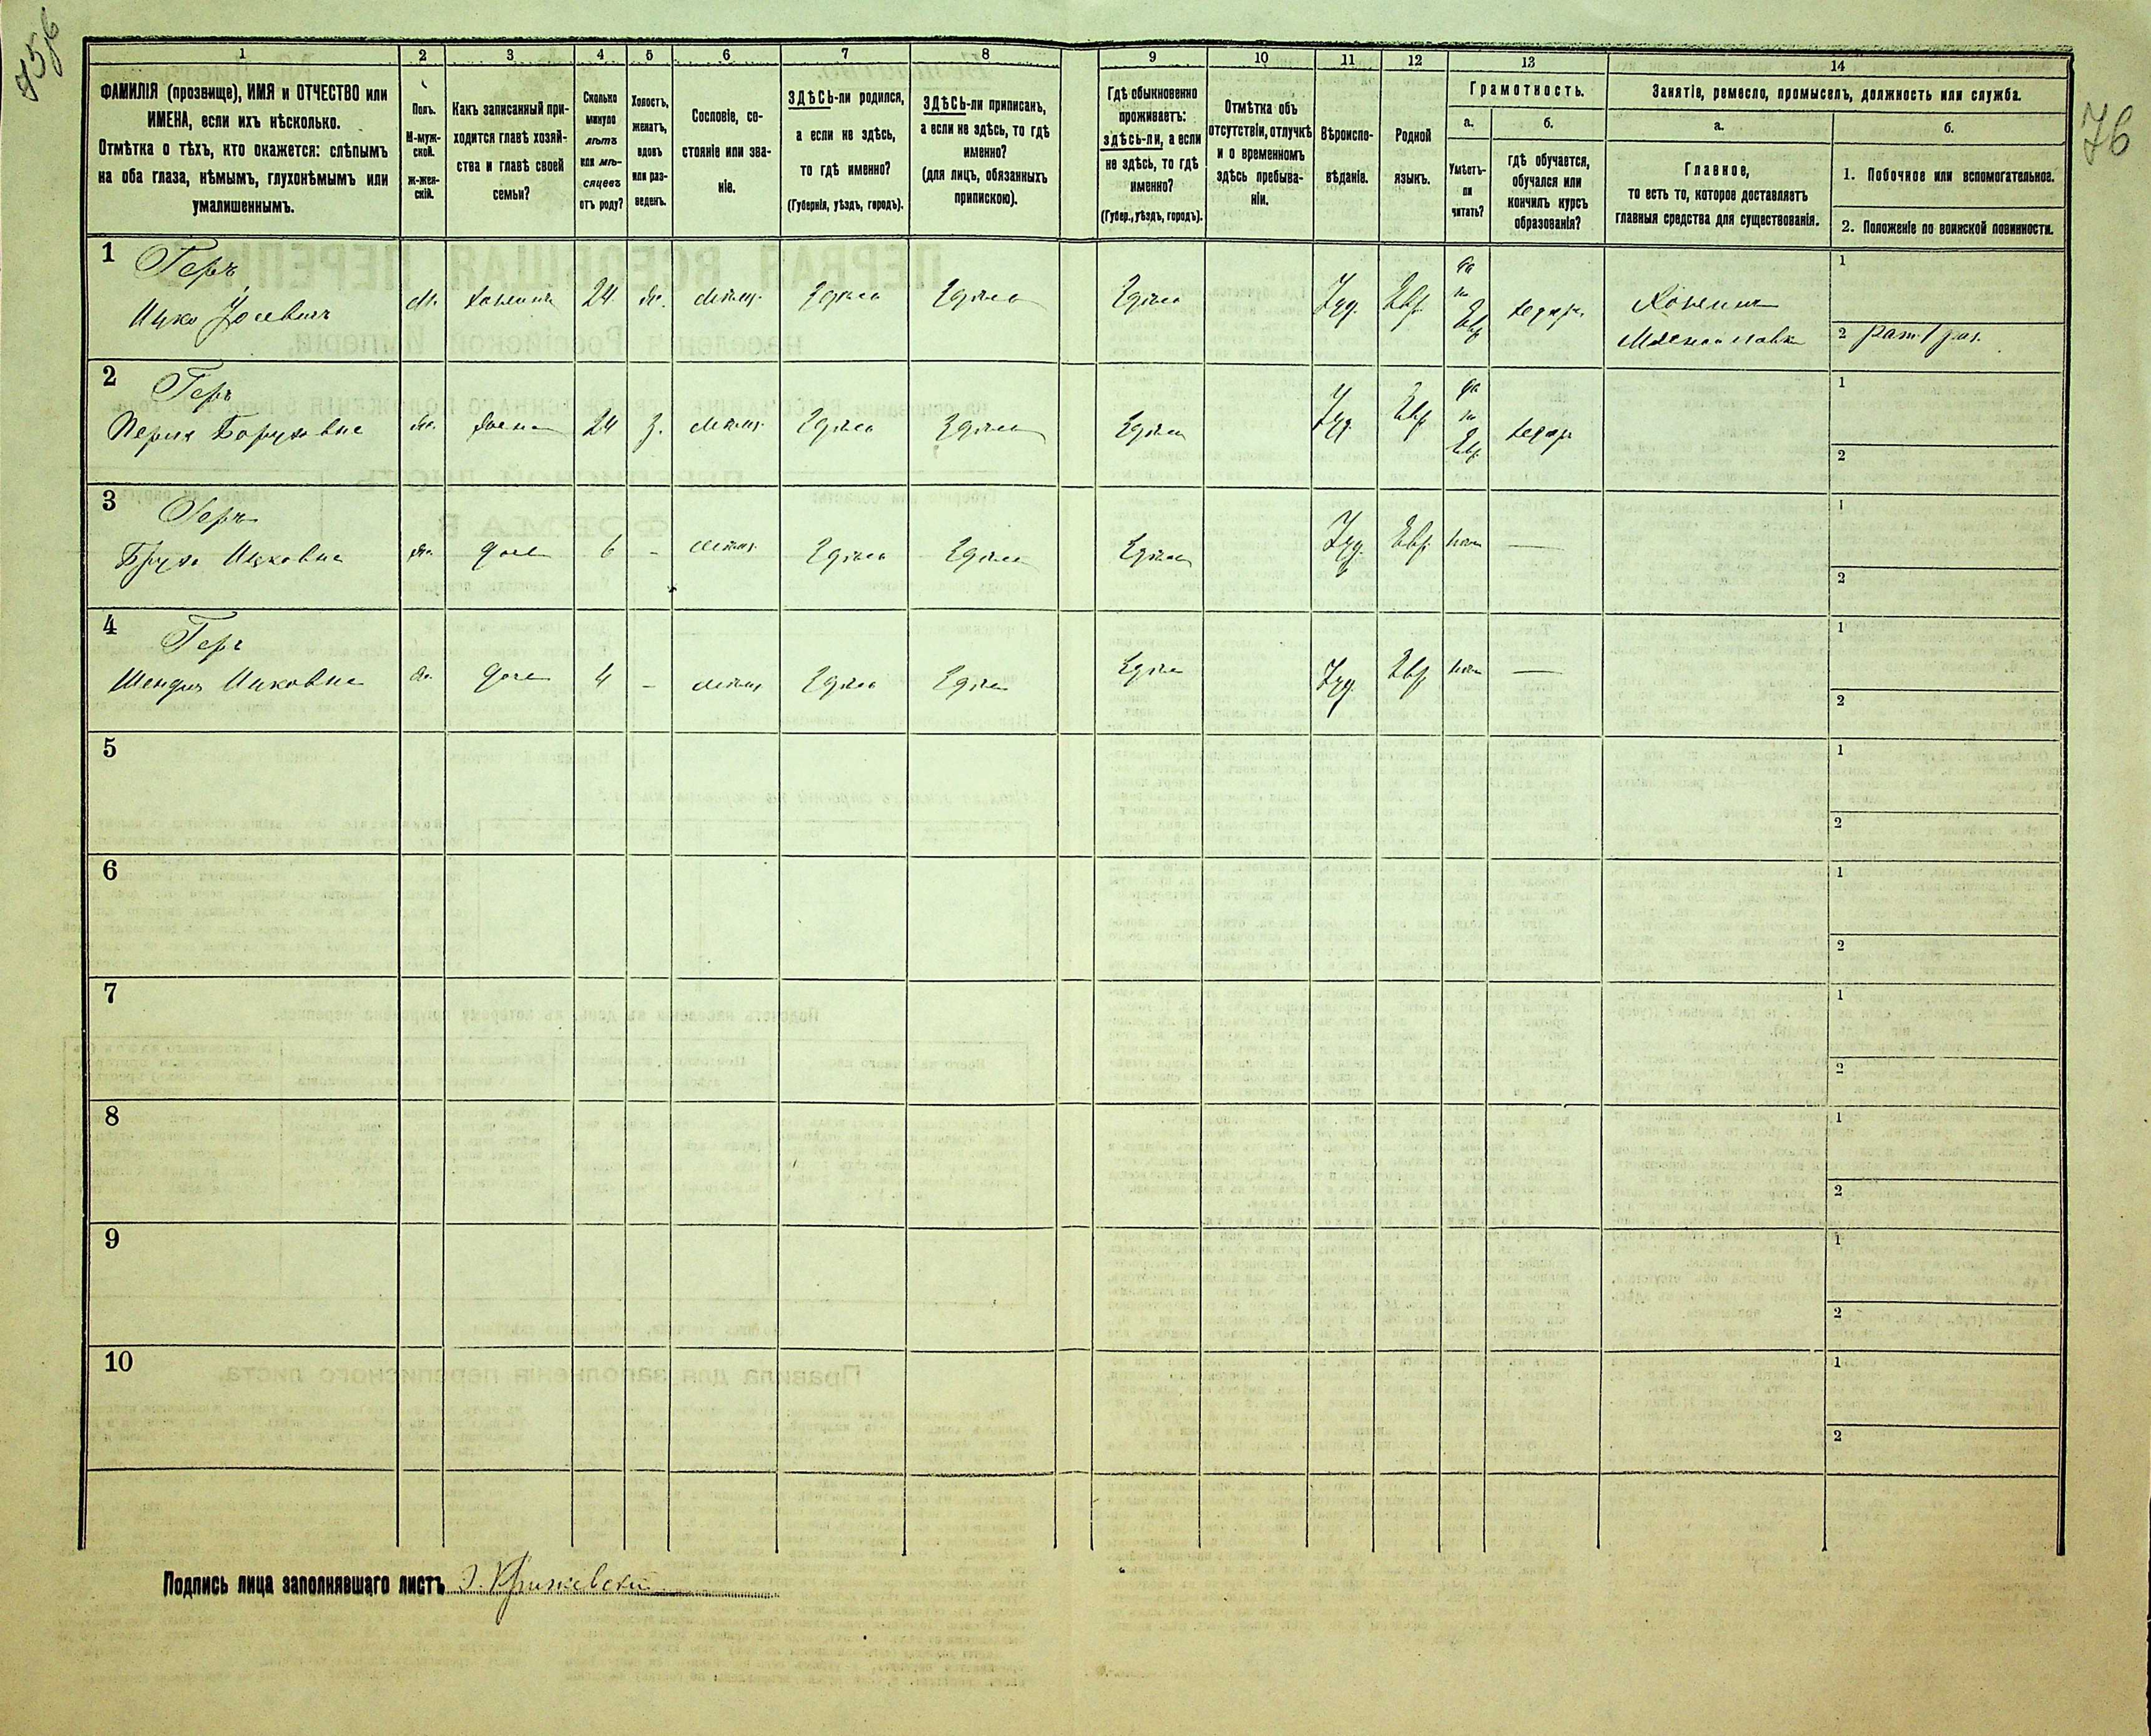 76
1
ФАМИЛІЯ (прозвище), ИМЯ и ОТЧЕСТВО или
ИМЕНА, если ихъ нѣсколько.
Отмѣтка о тѣхъ, кто окажется: слѣпымъ
на оба глаза, нѣмымъ, глухонѣмымъ или
умалишеннымъ.
2
Полъ.
М-муж-
ской.
Ж-жен-
скій.
3
Какъ записанный при-
ходится главѣ хозяй-
ства и главѣ своей
семьи?
4
Сколько
минуло
лѣтъ
или мѣ-
сяцевъ
отъ роду?
5
Холостъ,
женатъ,
вдовъ
или раз-
веденъ.
6
Сословіе, со-
стояніе или зва-
ніе.
7
ЗДѢСЬ-ли родился,
а если не здѣсь,
то гдѣ именно?
(Губернія, уѣздъ, городъ).
8
ЗДѢСЬ-ли приписанъ,
а если не здѣсь, то гдѣ
именно?
(для лицъ, обязанныхъ
припискою).
9
Гдѣ обыкновенно
проживаетъ:
здѣсь-ли, а если
не здѣсь, то гдѣ
именно?
(Губер., уѣздъ, городъ).
10
Отмѣтка объ
отсутствіи, отлучкѣ
и о временномъ
здѣсь пребыва-
ніи.
11
Вѣроиспо-
вѣданіе.
12
Родной
языкъ.
13
Грамотность.
а.
Умѣетъ-
ли
читать?
б.
гдѣ обучается,
обучался или
кончилъ курсъ
образованія?
14
Занятіе, ремесло, промыселъ, должность или служба.
а.
Главное,
то есть то, которое доставляетъ
главныя средства для существованія.
б.
1. Побочное или вспомогательное.
2. Положеніе по воинской повинности.
1
Геръ
Ицко Іосевичъ
м. хозяинъ 24 ж. мѣщ. Здѣсь Здѣсь Здѣсь Іуд. Евр. да по Евр. хедеръ Хозяинъ
1
2
2
Геръ
Перля Боруховна
ж. жена 24 з. мѣщ. Здѣсь Здѣсь Здѣсь Іуд. Евр. да по Евр. хедеръ
1
2
3
Геръ
Ицковна
ж. дочь 6 - мѣщ. Здѣсь Здѣсь Здѣсь Іуд. Евр. нѣтъ —
1
2
4
Геръ
Шендля Ицковна
ж. дочь 4 - мѣщ. Здѣсь Здѣсь Здѣсь Іуд. Евр. нѣтъ —
1
2
5
1
2
6
1
2
7
1
2
8
1
2
9
1
2
10
1
2
Подпись лица заполнявшаго листъ